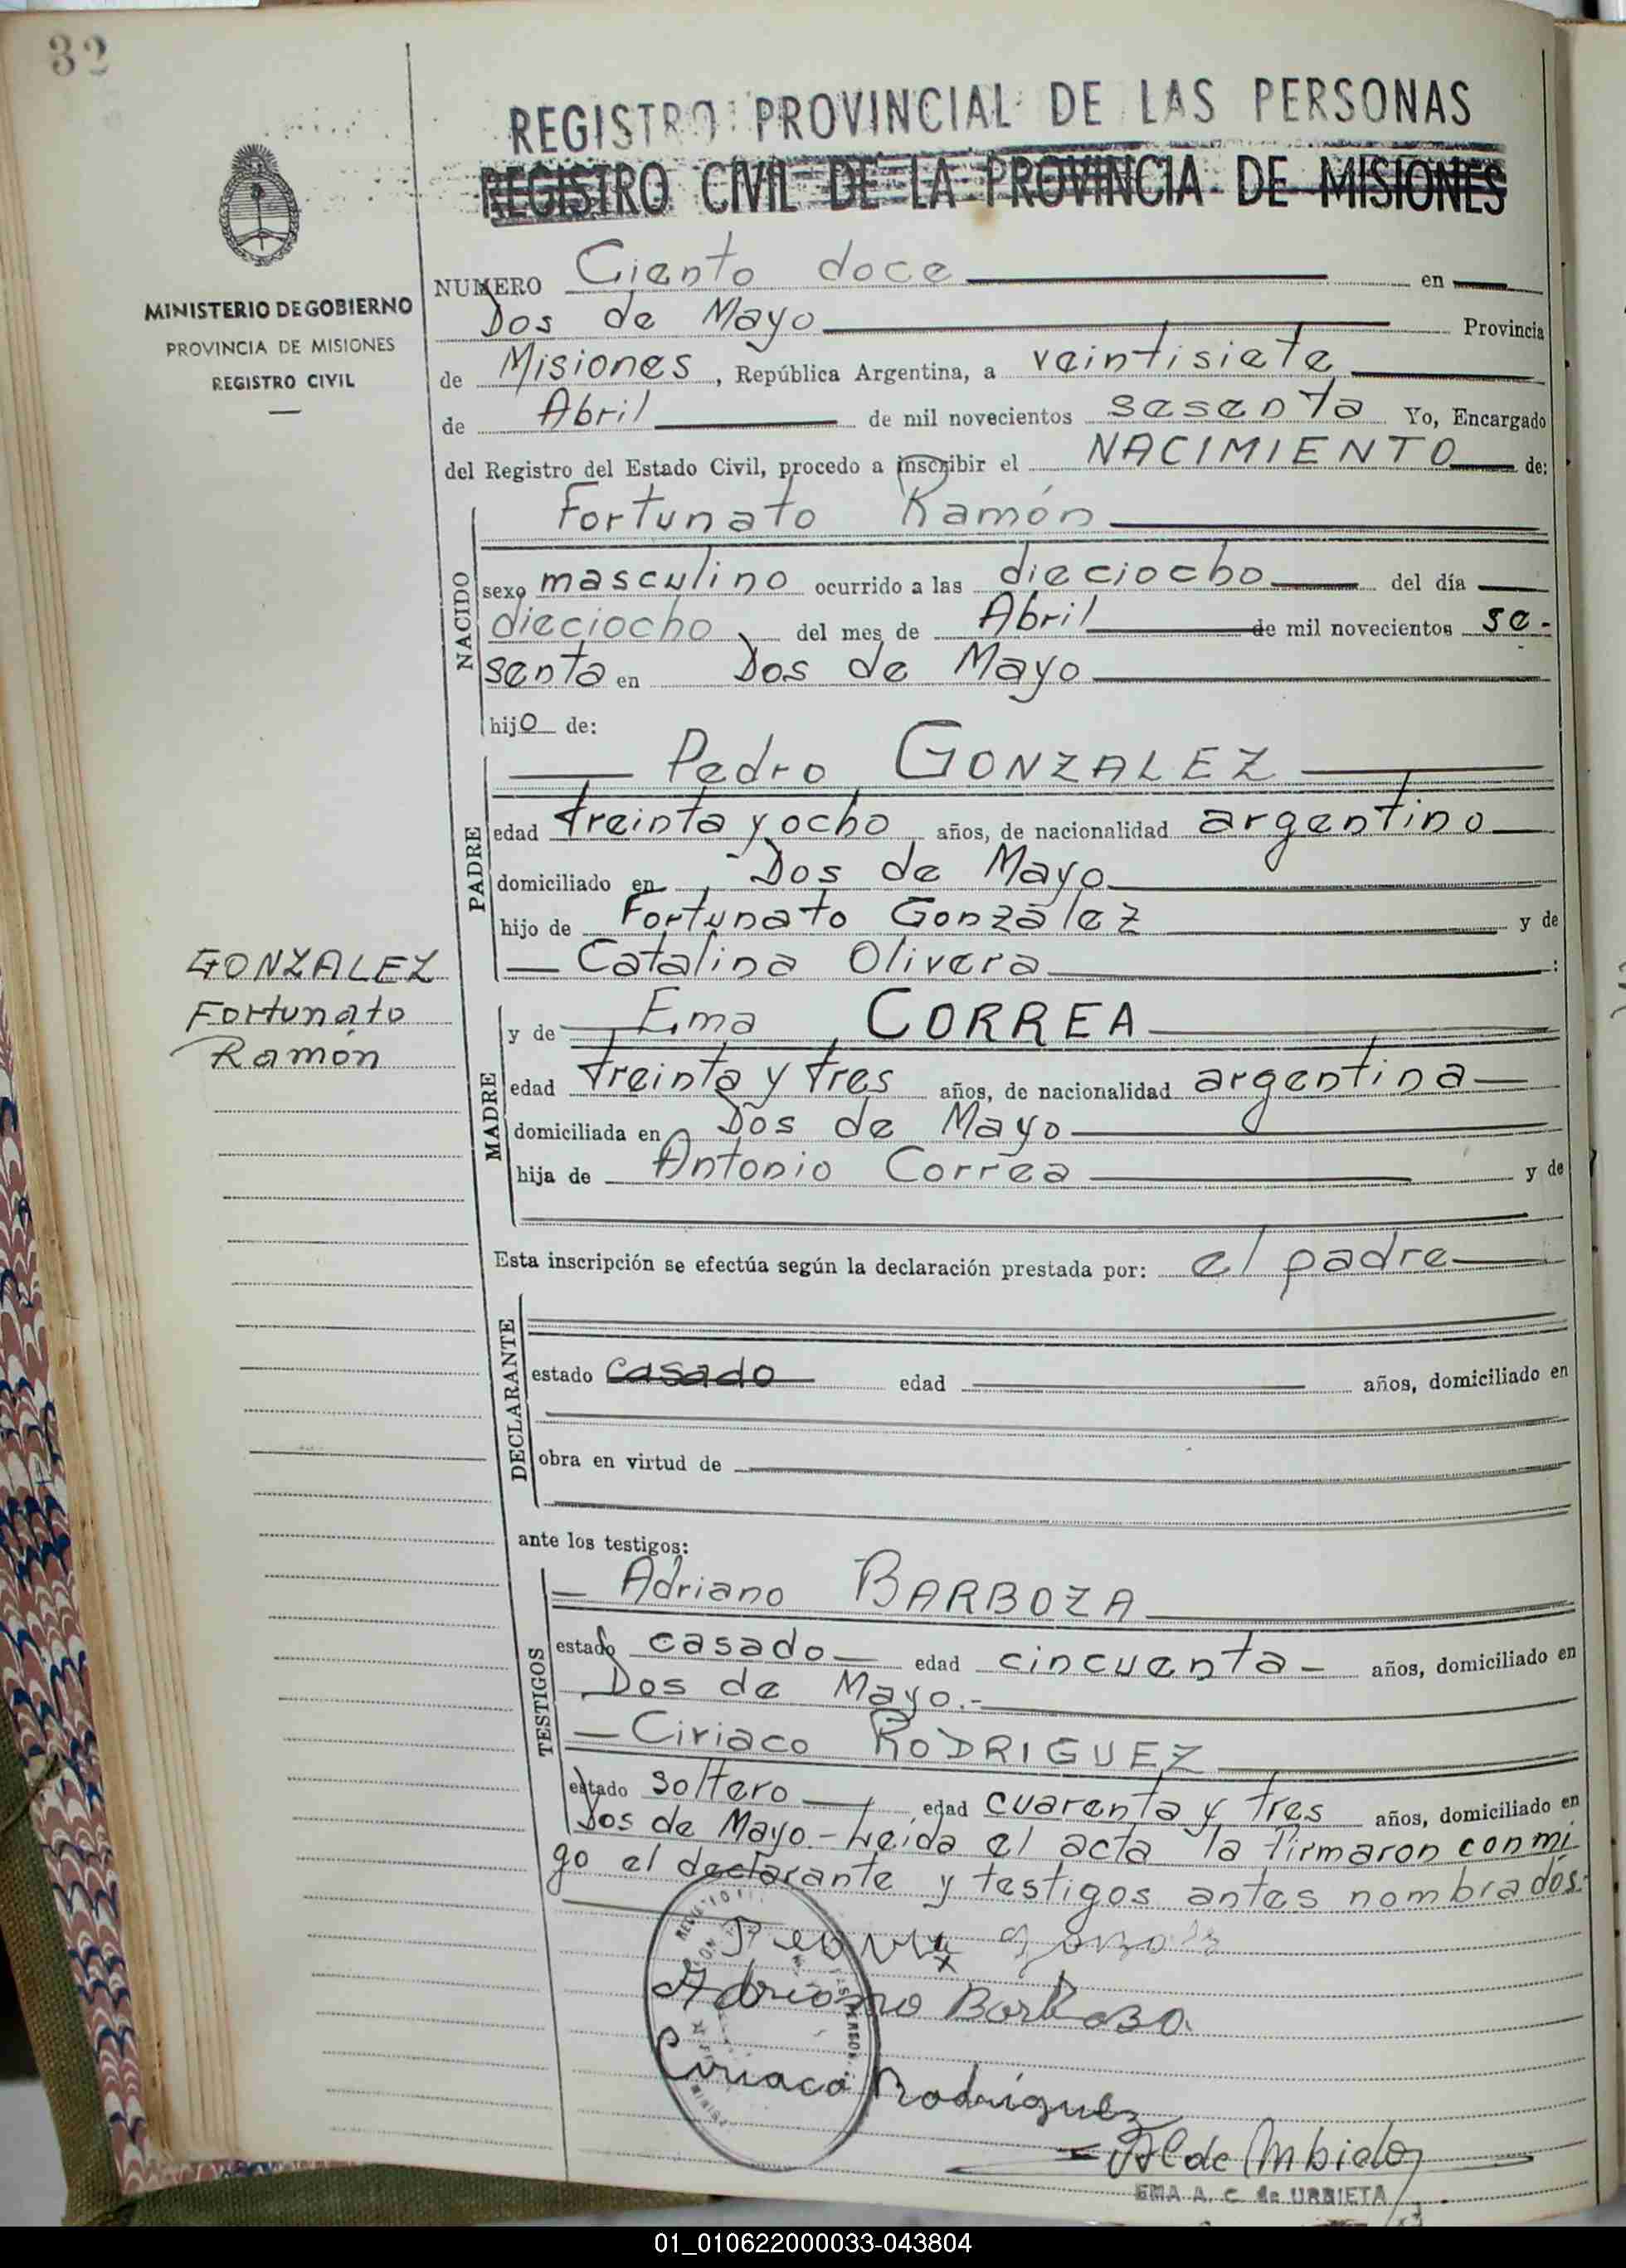 32
REGISTRO PROVINCIAL DE LAS PERSONAS
REGISTRO CIVIL DE LA PROVINCIA DE MISIONES
MINISTERIO DE GOBIERNO
PROVINCIA DE MISIONES
REGISTRO CIVIL
NUMERO Ciento doce en
Dos de Mayo Provincia
de Misiones, República Argentina, a veintisiete
de Abril de mil novecientos sesenta Yo, Encargado
del Registro del Estado Civil, procedo a inscribir el NACIMIENTO de:
Fortunato Ramón
NACIDO
sexo masculino ocurrido a las dieciocho del día
dieciocho del mes de Abril de mil novecientos se-
senta en Dos de Mayo
hijo de:
Pedro GONZALEZ
PADRE
edad treinta y ocho años, de nacionalidad argentino
domiciliado en Dos de Mayo
hijo de Fortunato González y de
Catalina Olivera :
GONZALEZ
Fortunato
Ramón
y de Ema CORREA
MADRE
edad treinta y tres años, de nacionalidad argentina
domiciliada en Dos de Mayo
hija de Antonio Correa y de
Esta inscripción se efectúa según la declaración prestada por: el padre
DECLARANTE
estado casado edad años, domiciliado en
obra en virtud de
ante los testigos:
Adriano BARBOZA
TESTIGOS
estado casado edad cincuenta años, domiciliado en
Dos de Mayo.-
Ciriaco RODRIGUEZ
estado soltero edad cuarenta y tres años, domiciliado en
Dos de Mayo - Leida el acta la firmaron conmi
go el declarante y testigos antes nombrados.
Adriano Barboza
Ciriaco Rodríguez
EMA A. C. de URBIETA
01_010622000033-043804